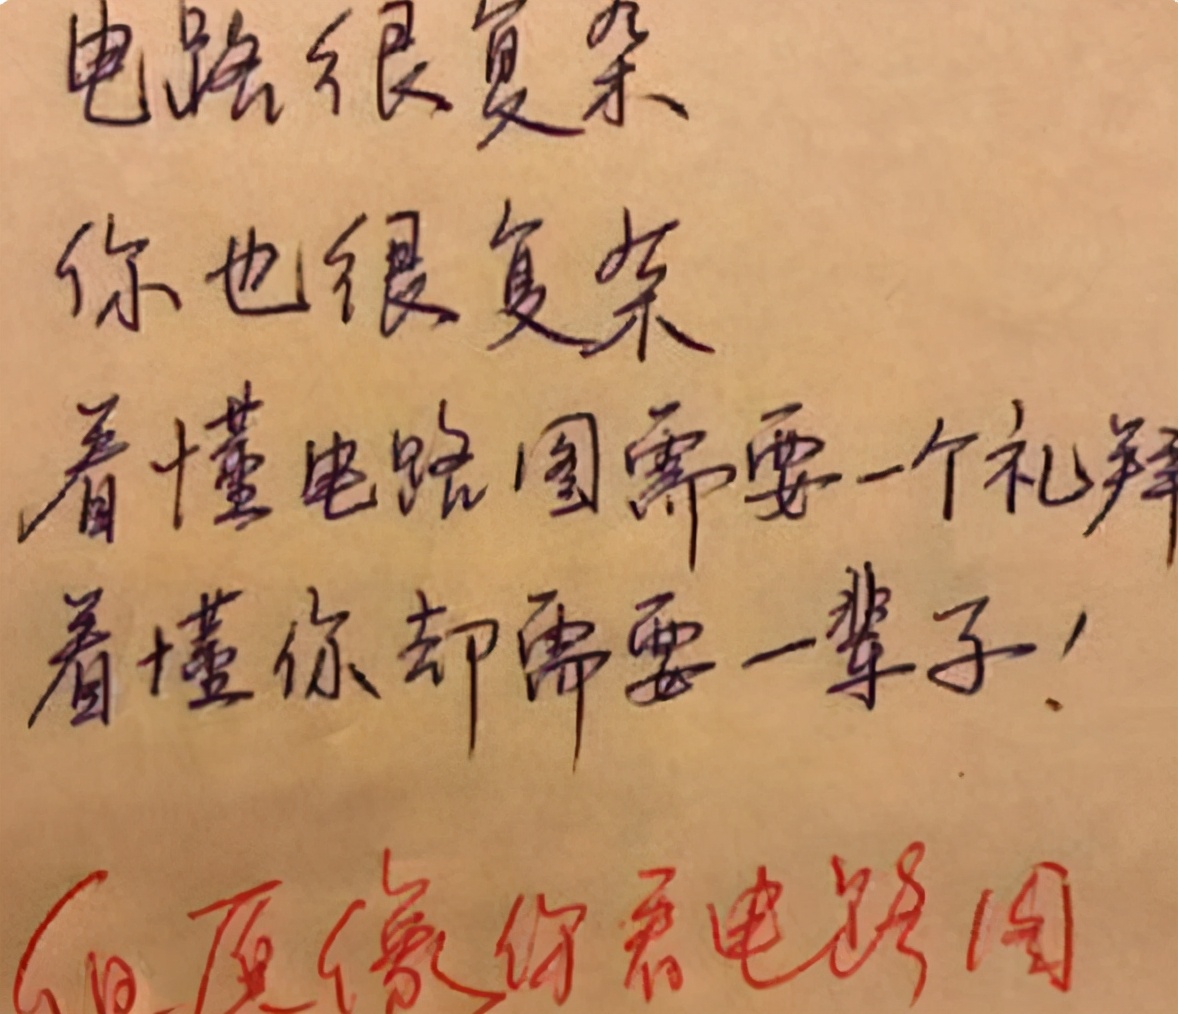 电路很复杂
你也很复杂
看懂电路图需要一个礼拜
看懂你却需要一辈子!
但愿像你看电路图